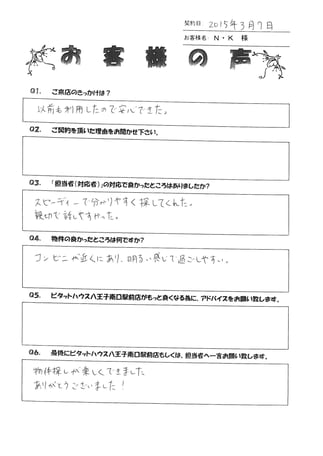 契約日 2015年3月7日
お客様名 N・K 様
お客様の声
Q1. ご来店のきっかけは?
以前も利用したので安心できた。
Q2. ご契約を頂いた理由をお聞かせ下さい。
Q3. 「担当者(対応者)」の対応で良かったところはありましたか?
スピーディーで分かりやすく探してくれた。
親切で話しやすかった。
Q4. 物件の良かったところは何ですか?
コンビニが近くにあり、明るい感じで過ごしやすい。
Q5. ピタットハウス八王子南口駅前店がもっと良くなる為に、アドバイスをお願い致します。
Q6. 最後にピタットハウス八王子南口駅前店もしくは、担当者へ一言お願い致します。
物件探しが楽しくできました
ありがとうございました!